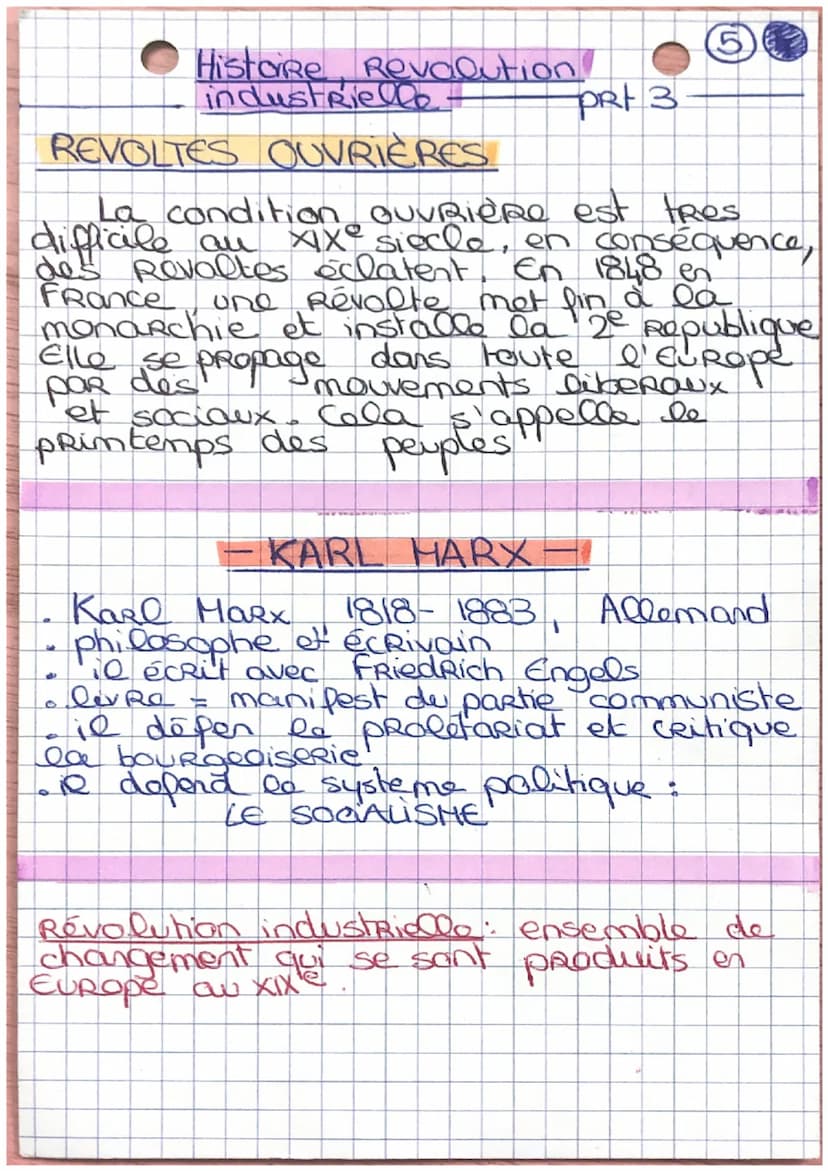 5
Histoire, Revolution
industrielle prt 3
REVOLTES OUVRIÈRES
La condition ouvrière est tres
difficile au XIXe siecle, en conséquence,
des Revoltes éclatent. En 1848 en
France, une Révolte met fin à la
monarchie et installe la 2e Republique
Elle se propage dans toute l'Europe
par des mouvements liberaux
et sociaux. Cela s'appelle le
printemps des peuples
- KARL MARX -
. Karl Marx 1818- 1883, Allemand
. philosophe et écrivain
. il écrit avec Friedrich Engels
. livre = manifest du partie communiste
. il défen le proletariat et critique
la bourgeoiserie
. il defend le systeme politique :
LE SOCIALISME
Révolution industrielle : ensemble de
changement qui se sont produits en
Europe au XIXe.